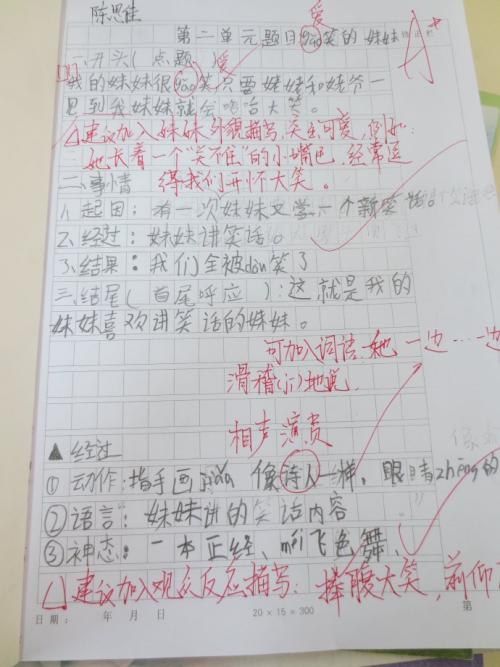 陈思佳
爱
第二单元题目gǎo笑的妹妹
一、开头(点题) 爱
我的妹妹很gǎo笑只要姥姥和姥爷一
见到我妹妹就会哈哈大笑。
建议加入妹妹外貌描写,突出可爱,例如:
她长着一个"笑不住"的小嘴巴,经常逗
二、事情 得我们开怀大笑。
1.起因:有一次妹妹又学一个新笑话。
2.经过:妹妹讲笑话。
3.结果:我们全被dòu笑了
三、结尾(首尾呼应):这就是我的
妹妹喜欢讲笑话的妹妹。
可加入词语:她一边…一边
滑稽(jī)地说
相声演员
▲经过
①动作:指手画jiǎo 像诗人一样,眼睛zhēng的
②语言:妹妹讲的笑话内容
③神态:一本正经、méi飞色舞、
建议加入观众反应描写:捧腹大笑,前仰
日期: 年 月 日 20×15=300 第